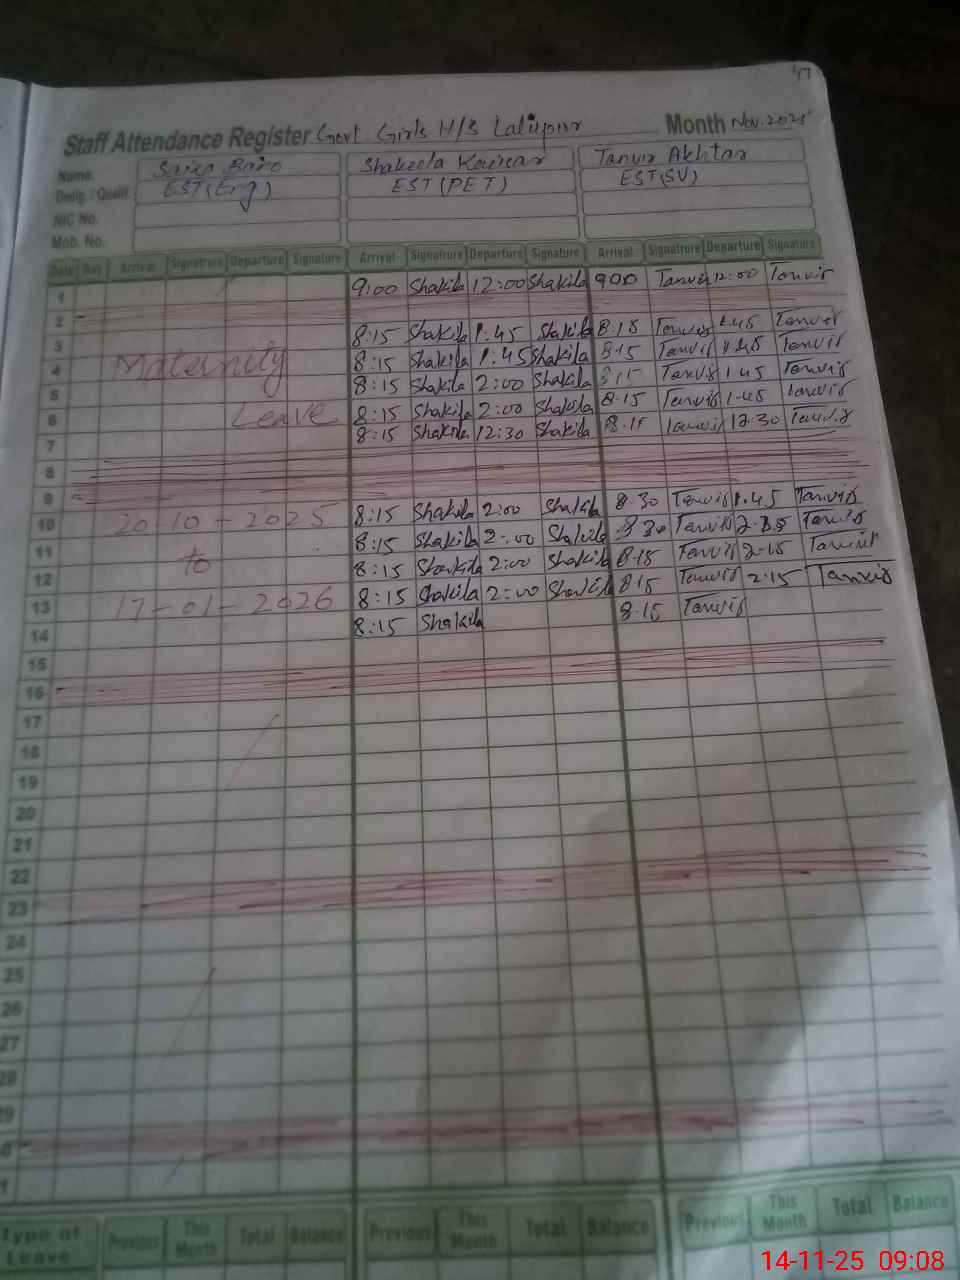 47
Staff Attendance Register Govt Girls H/S Lalupur Month Nov. 2025
Name: Saira Bano Shakeela Kausar Tanvir Akhtar
Desig. / Qualif. EST(Eng) EST(PET) EST(SV)
NIC No.
Mob. No.
Date Day Arrival Signatrure Departure Signature Arrival Signatrure Departure Signatrure Arrival Signatrure Departure Signatrure
1 9:00 Shakila 12:00 Shakila 900 Tanvir 12:00 Tanvir
2
3 8:15 Shakila 1:45 Shakila 8:15 Tanvir 1.45 Tanvir
4 Maternity 8:15 Shakila 1:45 Shakila 8:15 Tanvir 1.45 Tanvir
5 8:15 Shakila 2:00 Shakila 8:15 Tanvir 1.45 Tanvir
6 Leave 8:15 Shakila 2:00 Shakila 8.15 Tanvir 1.45 Tanvir
7 8:15 Shakila 12:30 Shakila 8.15 Tanvir 12.30 Tanvir
8
9
10 20-10-2025 8:15 Shakila 2:00 Shakila 8.30 Tanvir 1.45 Tanvir
11 to 8:15 Shakila 2:00 Shakila 8.30 Tanvir Tanvir
12 8:15 Shakila 2:00 Shakila 8.15 Tanvir 2.15 Tanvir
13 17-01-2026 8:15 Shakila 2:00 Shakila 8.15 Tanvir 2.15 Tanvir
14 8:15 Shakila 8.15 Tanvir
15
16
17
18
19
20
21
22
23
24
25
26
27
28
29
Type of Leave Previous This Month Total Balance Previous This Month Total Balance Previous This Month Total Balance
14-11-25 09:08